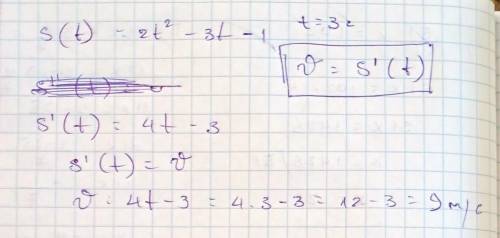 S(t) = 2t² - 3t - 1
t = 3c
υ = S'(t)
S'(t) = 4t - 3
S'(t) = υ
υ = 4t - 3 = 4 · 3 - 3 = 12 - 3 = 9 м/с